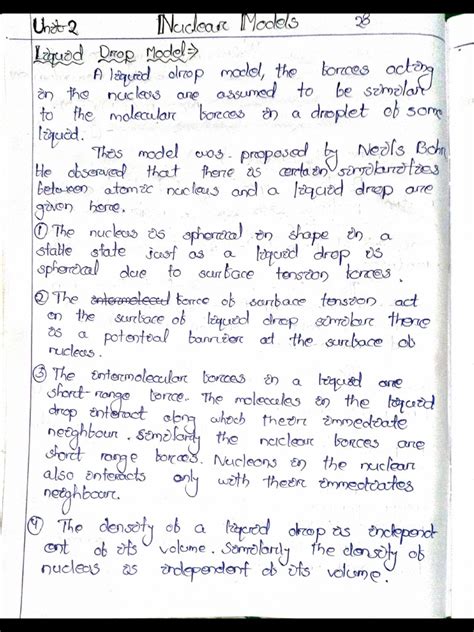 Unit-2 Nuclear Models 28
Liquid Drop Model:⇒
A liquid drop model, the forces acting
in the nucleus are assumed to be similar
to the molecular forces in a droplet of some
liquid.
This model was proposed by Neils Bohr
He observed that there is certain similarities
between atomic nucleus and a liquid drop are
given here.
① The nucleus is spherical in shape in a
stable state just as a liquid drop is
spherical due to surface tension forces.
② The intermolecul force of surface tension act
on the surface of liquid drop similar there
is a potential barrier at the surface of
nucleus.
③ The intermolecular forces in a liquid are
short-range force. The molecules in the liquid
drop interact along which their immediate
neighbour. Similarly the nuclear forces are
short range forces. Nucleons in the nuclear
also interacts only with their immediates
neighbour.
④ The density of a liquid drop is independ
ent of its volume. Similarly the density of
nucleus is independent of its volume.